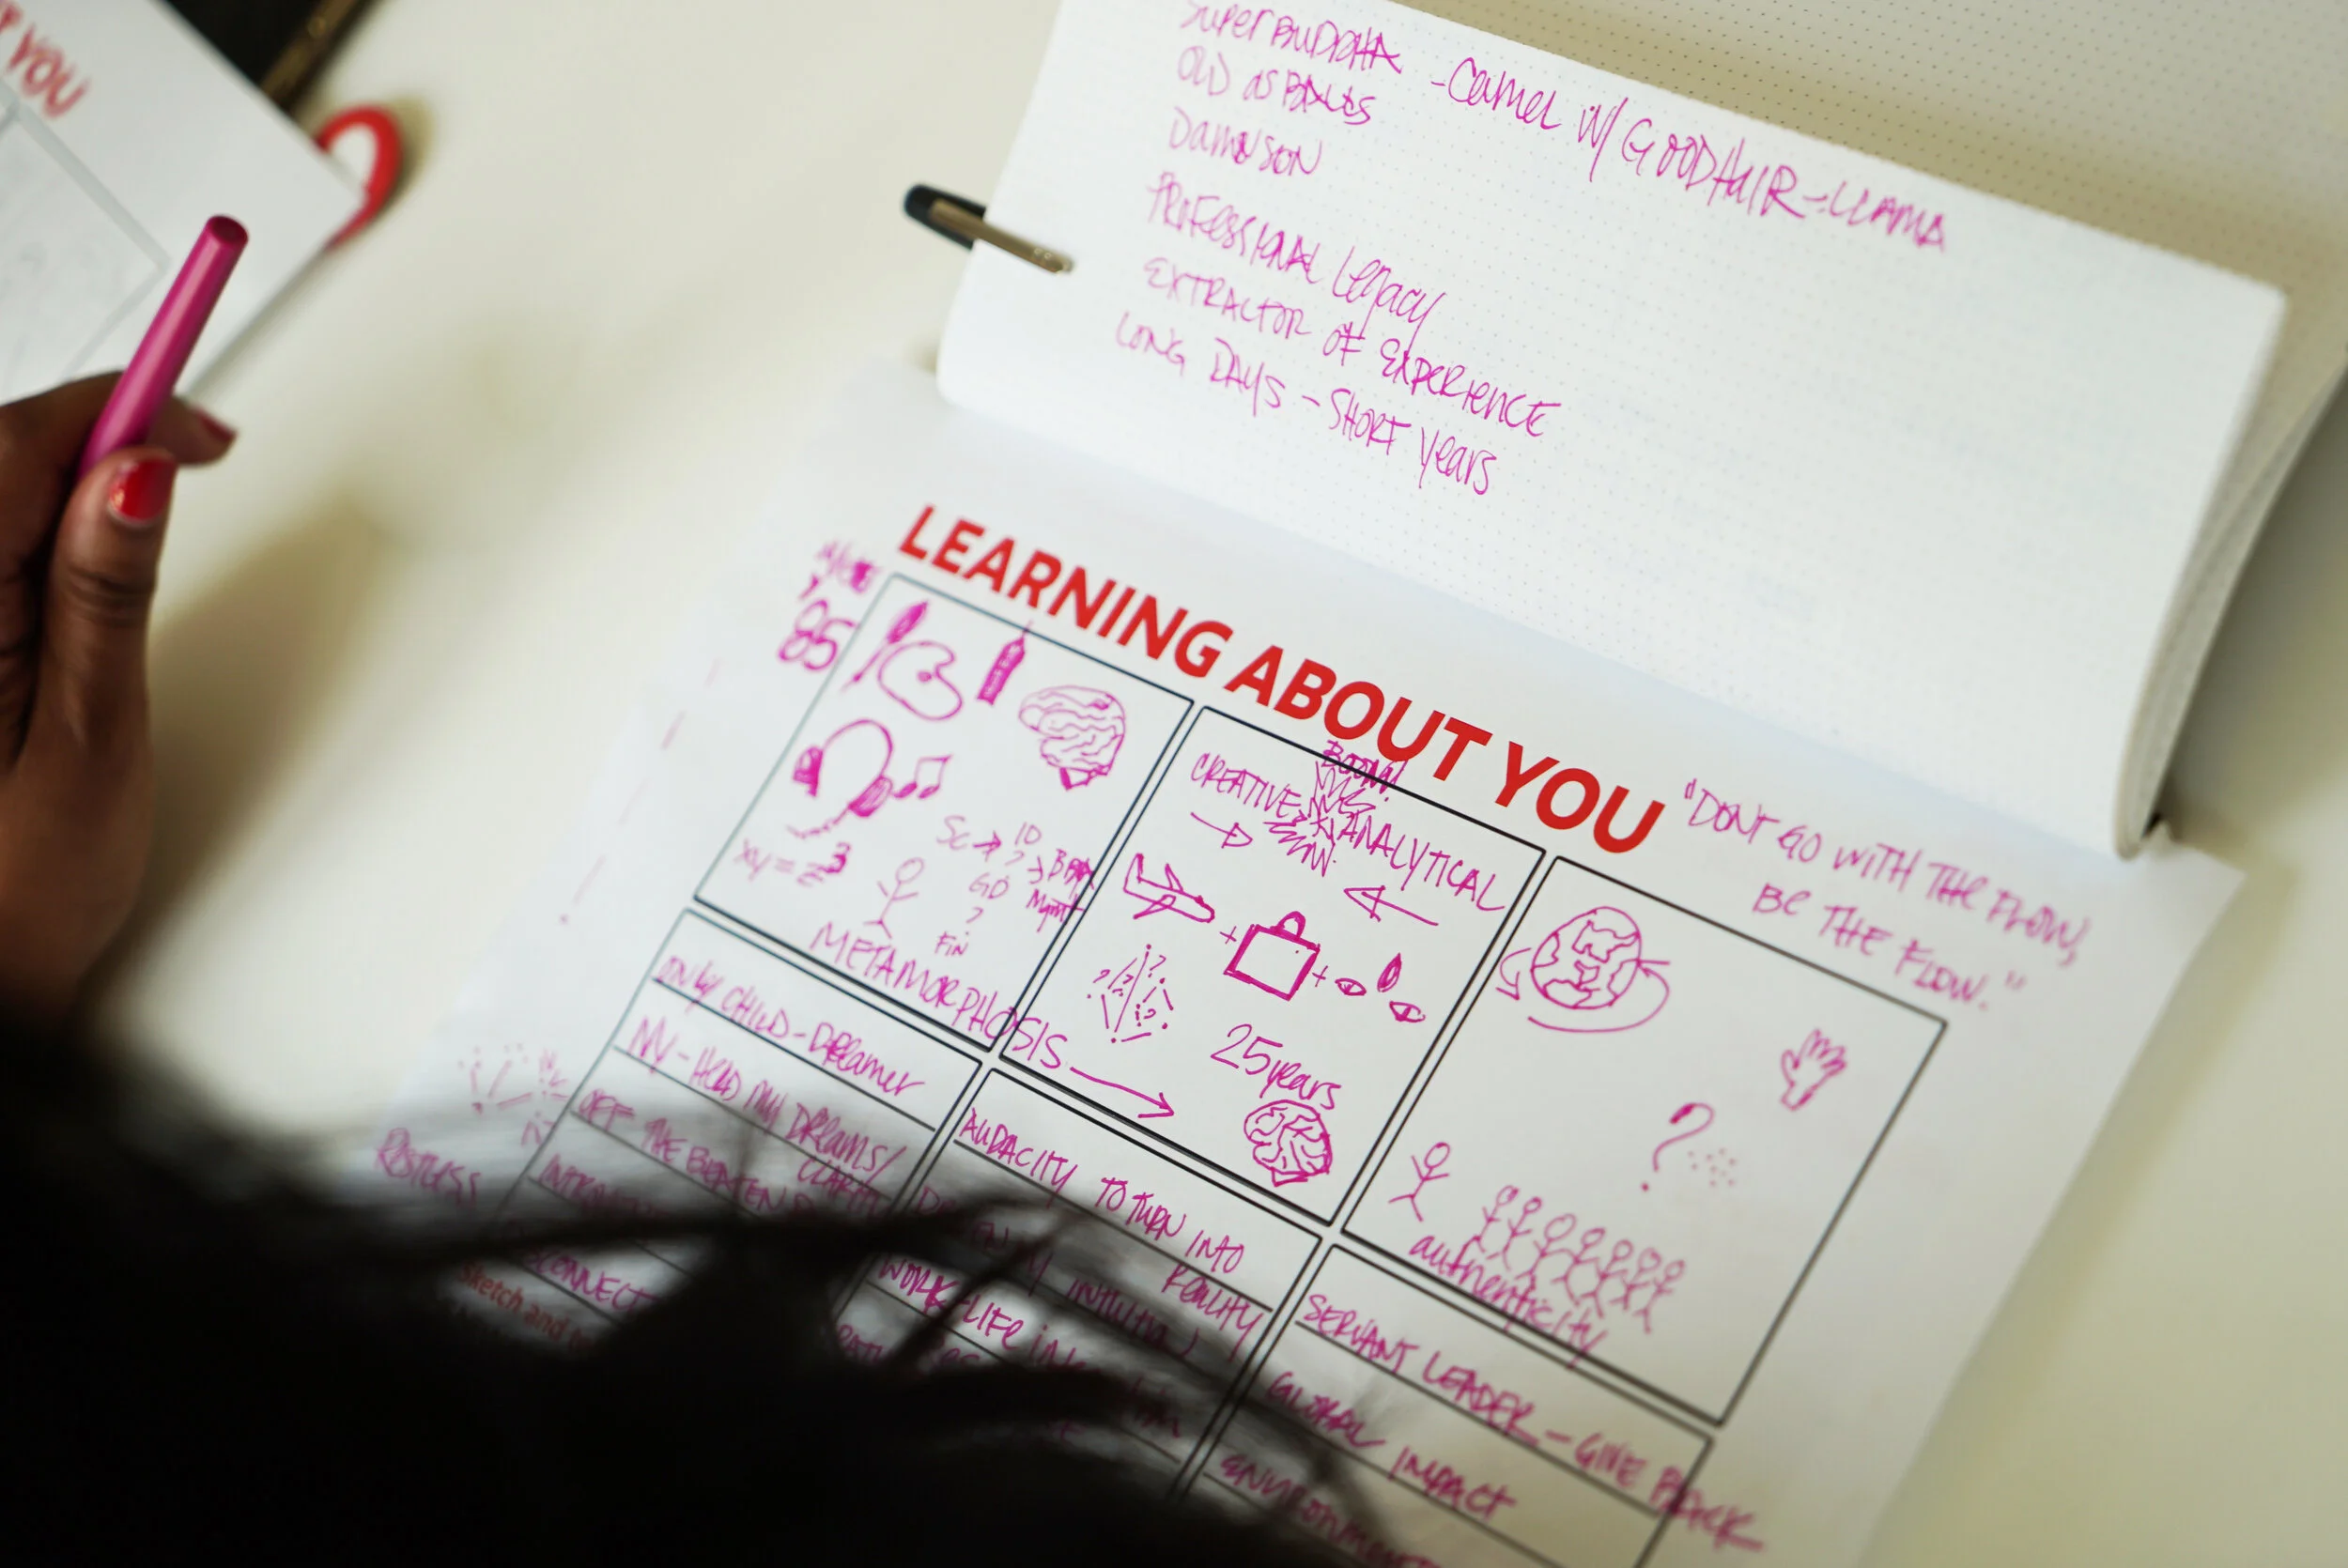 YOU
SUPER BUDDHA - Camel W/ GOOD HAIR - LLAMA
OLD as BALLS
DAMN SON
PROFESSIONAL Legacy
EXTRACTOR OF EXPERIENCE
LONG DAYS - SHORT Years
LEARNING ABOUT YOU
"DONT GO WITH THE FLOW,
BE THE FLOW."
85
xy = z³
SC → ID
?
GD
?
FIN
Mgmt
METAMORPHOSIS
BOOM!
CREATIVE
ANALYTICAL
+
+
25 years
?
authenticity
ONLY CHILD - DReamer
NV - HELD MY DReams/
CLARITY
OFF THE BEATEN
RESTLESS
CONNECT
Sketch and
AUDACITY TO TURN INTO
REALITY
INTUITION
WORK-LIFE
SERVANT LEADER - GIVE BACK
GLOBAL IMPACT